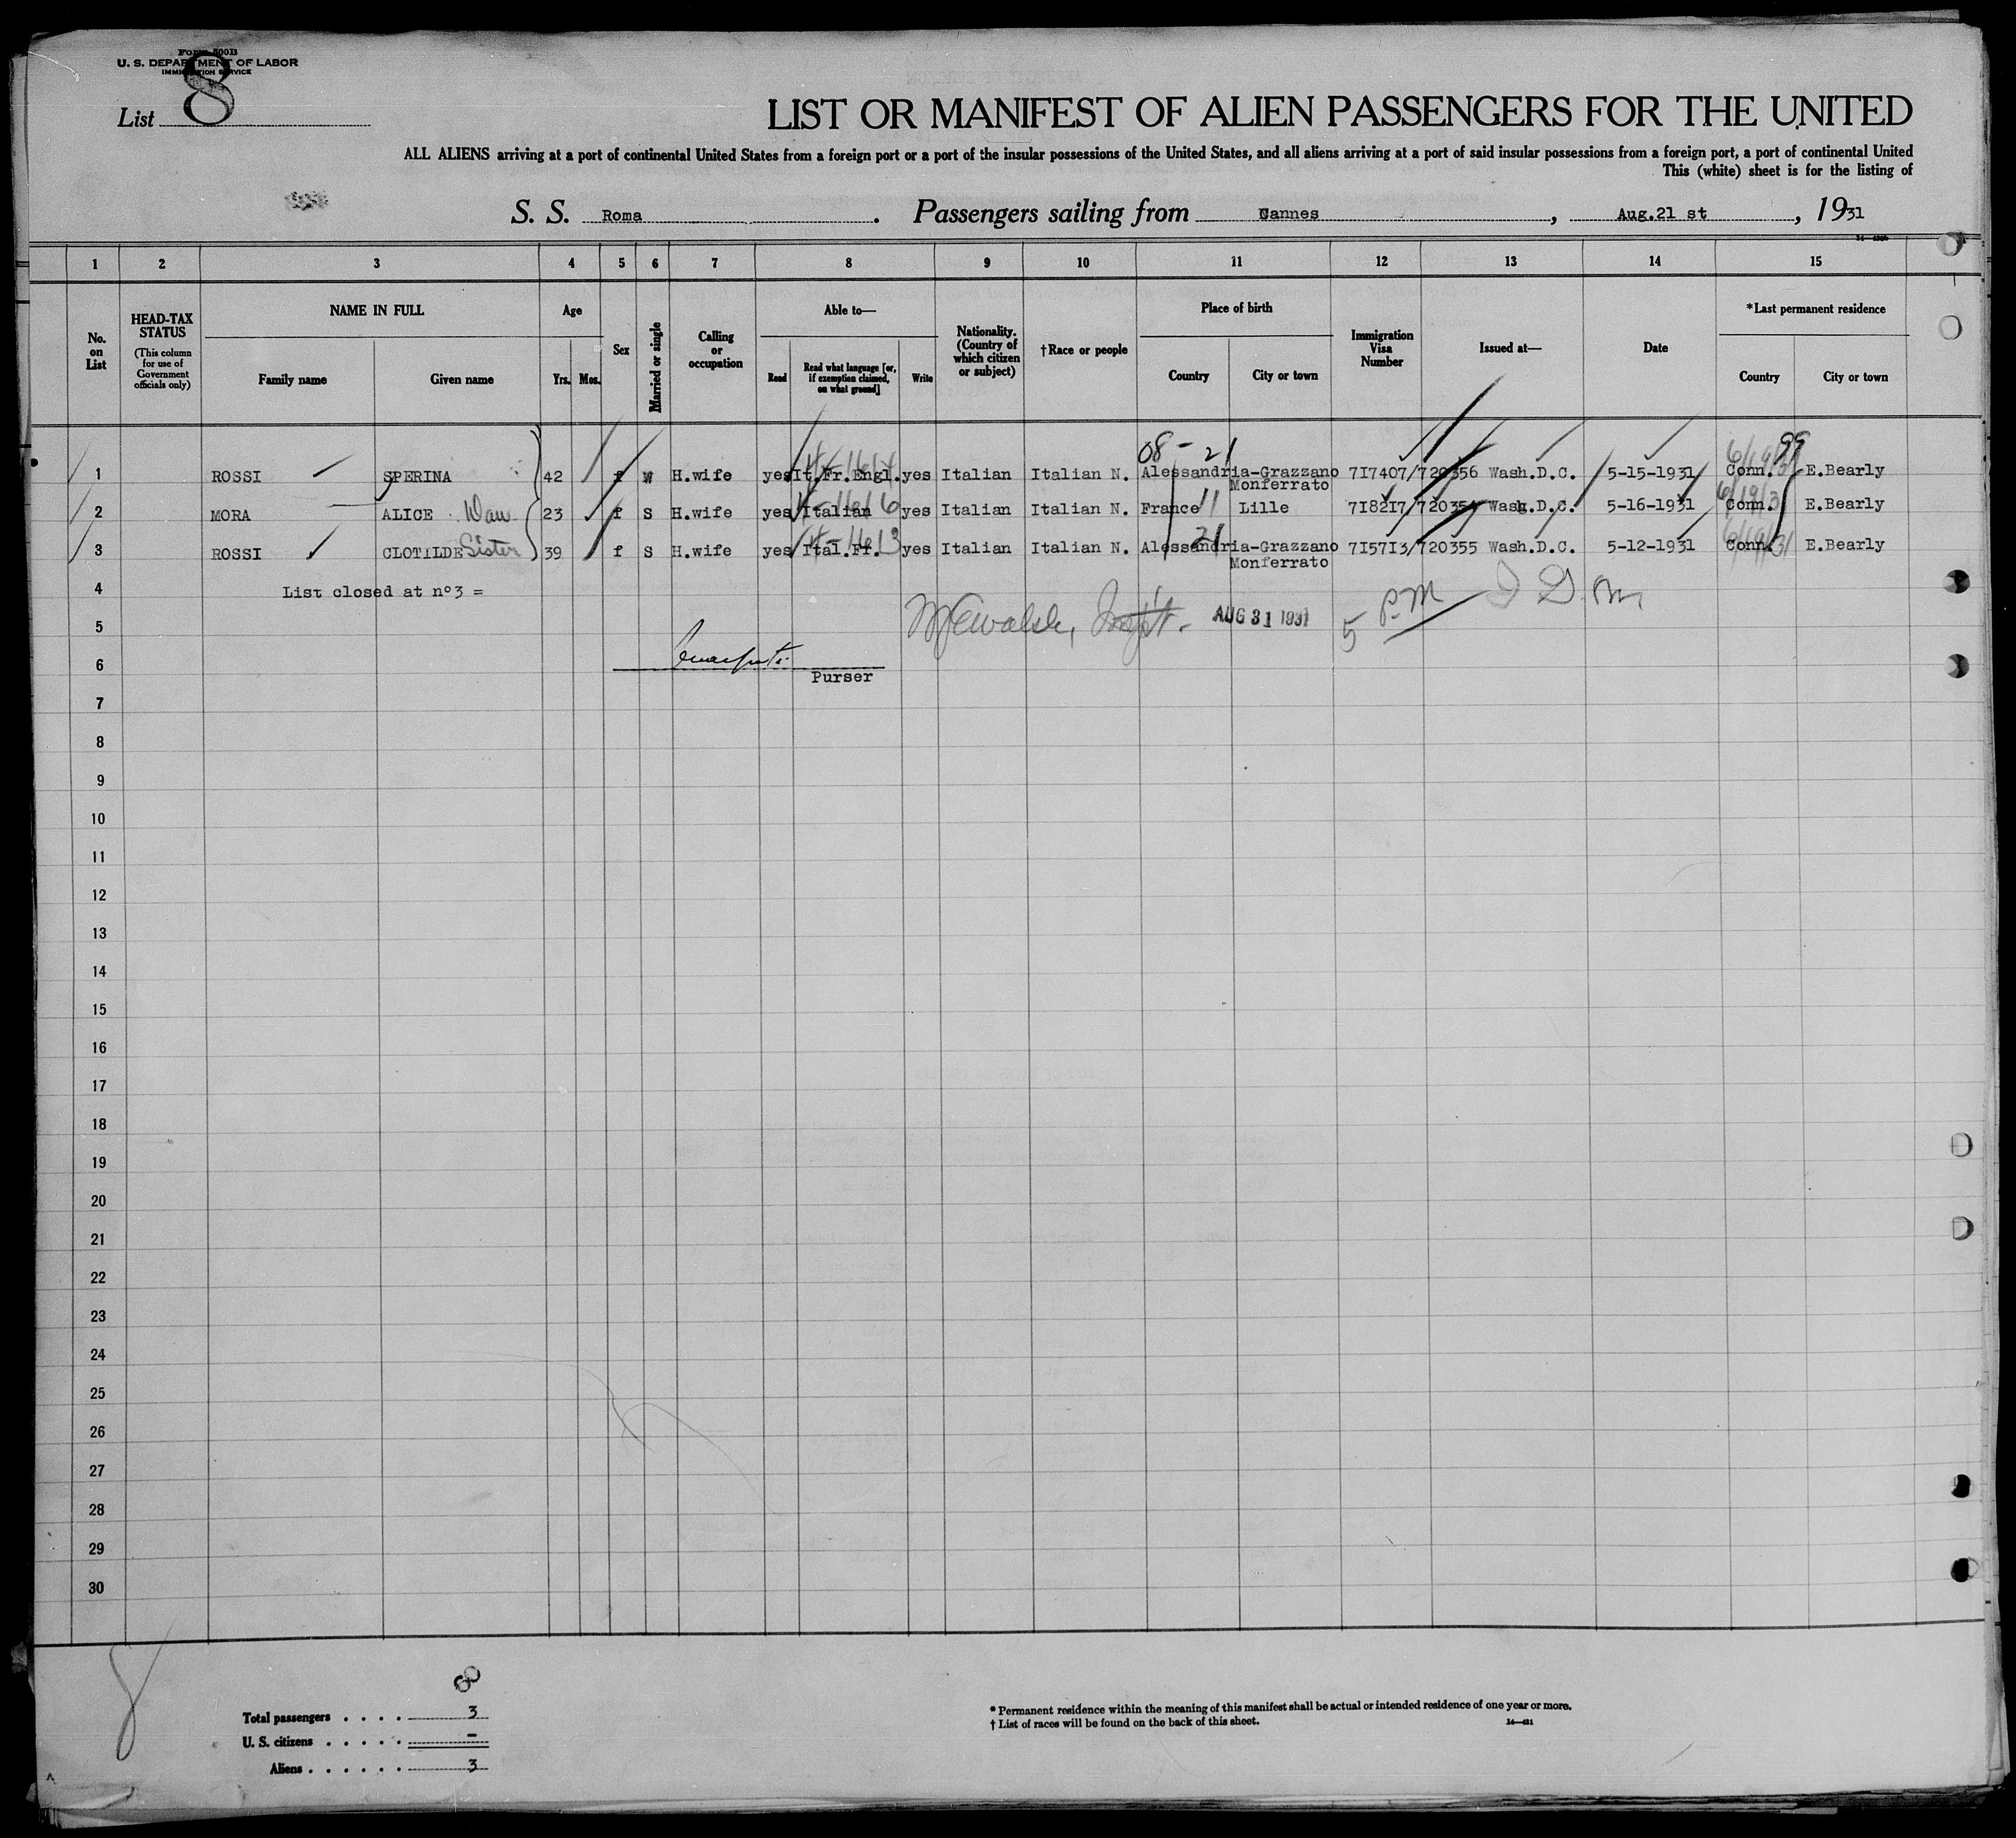 Form 500B
U. S. DEPARTMENT OF LABOR
IMMIGRATION SERVICE
List 8
LIST OR MANIFEST OF ALIEN PASSENGERS FOR THE UNITED
ALL ALIENS arriving at a port of continental United States from a foreign port or a port of the insular possessions of the United States, and all aliens arriving at a port of said insular possessions from a foreign port, a port of continental United
This (white) sheet is for the listing of
S. S. Roma. Passengers sailing from Cannes, Aug.21 st, 1931
1 2 3 4 5 6 7 8 9 10 11 12 13 14 15
No. on List
HEAD-TAX STATUS (This column for use of Government officials only)
NAME IN FULL
Family name
Given name
Age
Yrs. Mos.
Sex
Married or single
Calling or occupation
Able to—
Read
Read what language [or, if exemption claimed, on what ground]
Write
Nationality. (Country of which citizen or subject)
†Race or people
Place of birth
Country
City or town
Immigration Visa Number
Issued at—
Date
*Last permanent residence
Country
City or town
08 - 21 99
1 ROSSI SPERINA 42 f W H.wife yes It.Fr.Engl. yes Italian Italian N. Alessandria-Grazzano Monferrato 7I7407/720356 Wash.D.C. 5-15-1931 Conn. E.Bearly
2 MORA ALICE Dau 23 f S H.wife yes Italian yes Italian Italian N. France 11 Lille 7I82I7/72035 Wash.D.C. 5-16-1931 Conn. E.Bearly
21
3 ROSSI CLOTILDE Sister 39 f S H.wife yes Ital.Fr. yes Italian Italian N. Alessandria-Grazzano Monferrato 7I57I3/720355 Wash.D.C. 5-12-1931 Conn. E.Bearly
4 List closed at n°3 =
AUG 31 1931 5 P.M
5
6
Purser
7
8
9
10
11
12
13
14
15
16
17
18
19
20
21
22
23
24
25
26
27
28
29
30
8
Total passengers . . . . 3
U. S. citizens . . . . . –
Aliens . . . . . . 3
* Permanent residence within the meaning of this manifest shall be actual or intended residence of one year or more.
† List of races will be found on the back of this sheet.